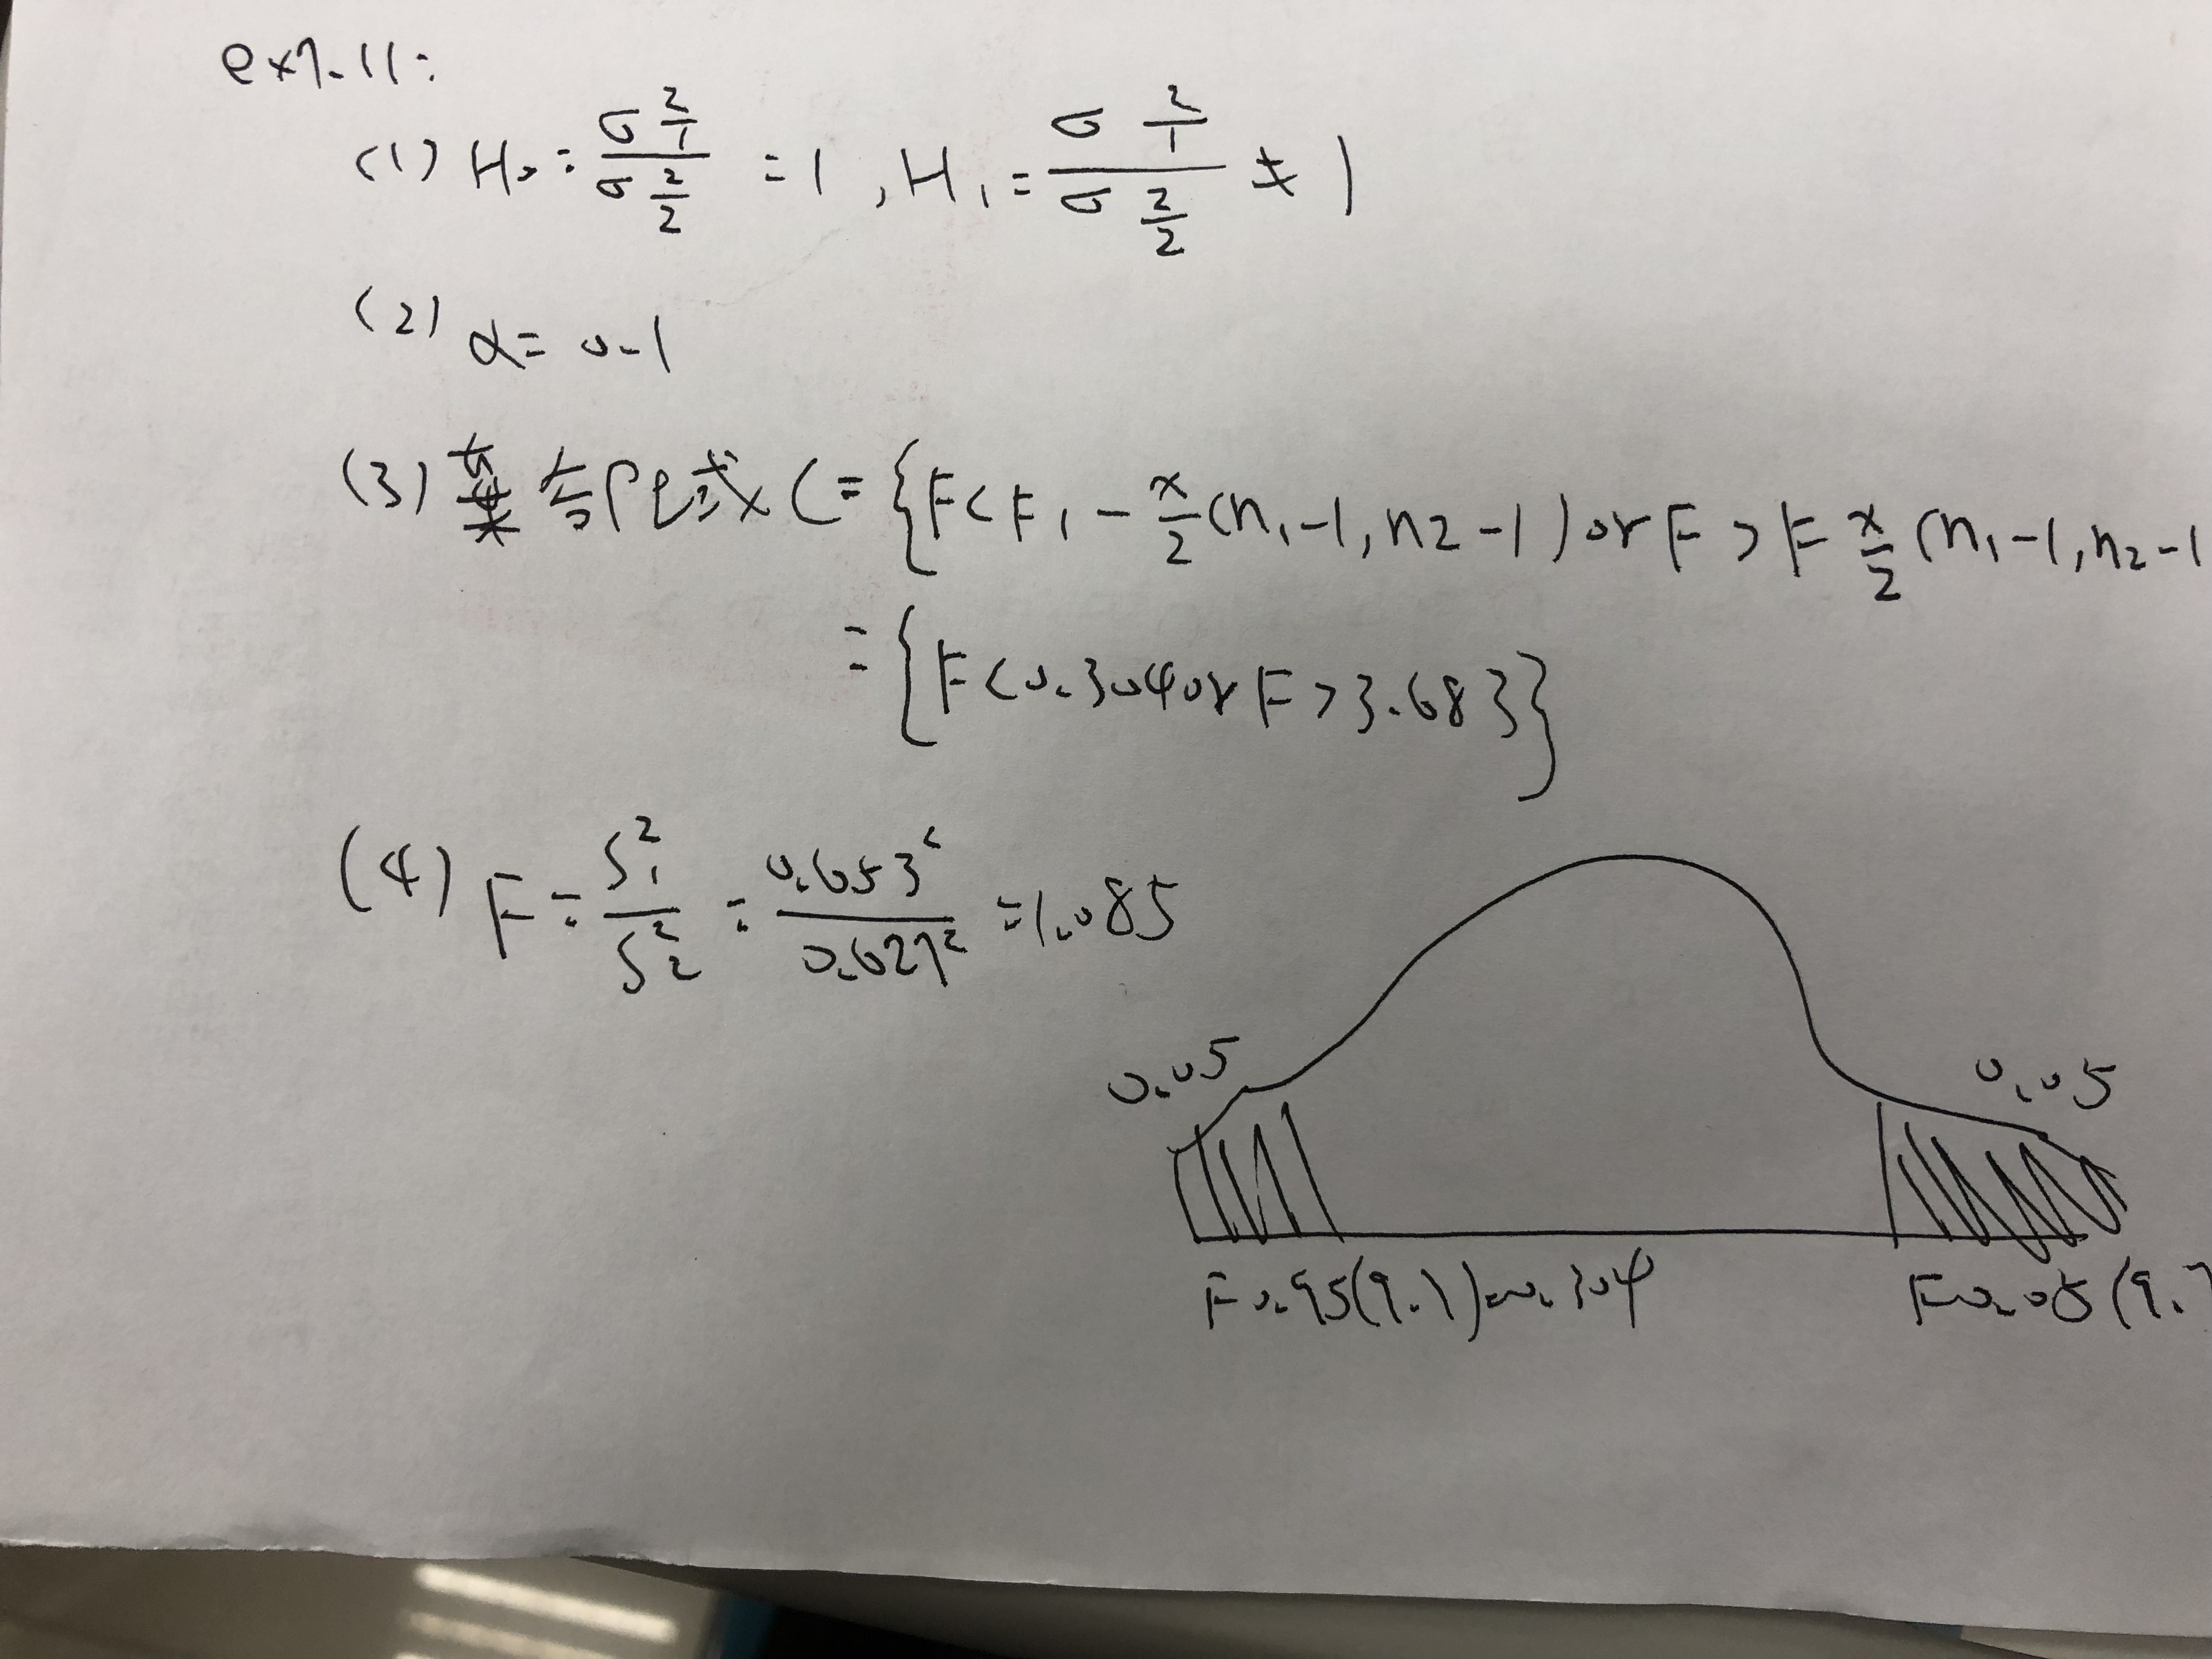 ex7-11:
(1) H₀: σ₁²/σ₂² = 1, H₁ = σ₁²/σ₂² ≠ 1
(2) α = 0.1
(3) 棄却域 C = {F < F 1-α/2 (n₁-1, n₂-1) or F > F α/2 (n₁-1, n₂-1
= {F < 0.304 or F > 3.68}}
(4) F = S₁²/S₂² = 0.653²/0.627² = 1.085
0.05 0.05
F0.95(9.7) = 0.304 F0.05(9.7